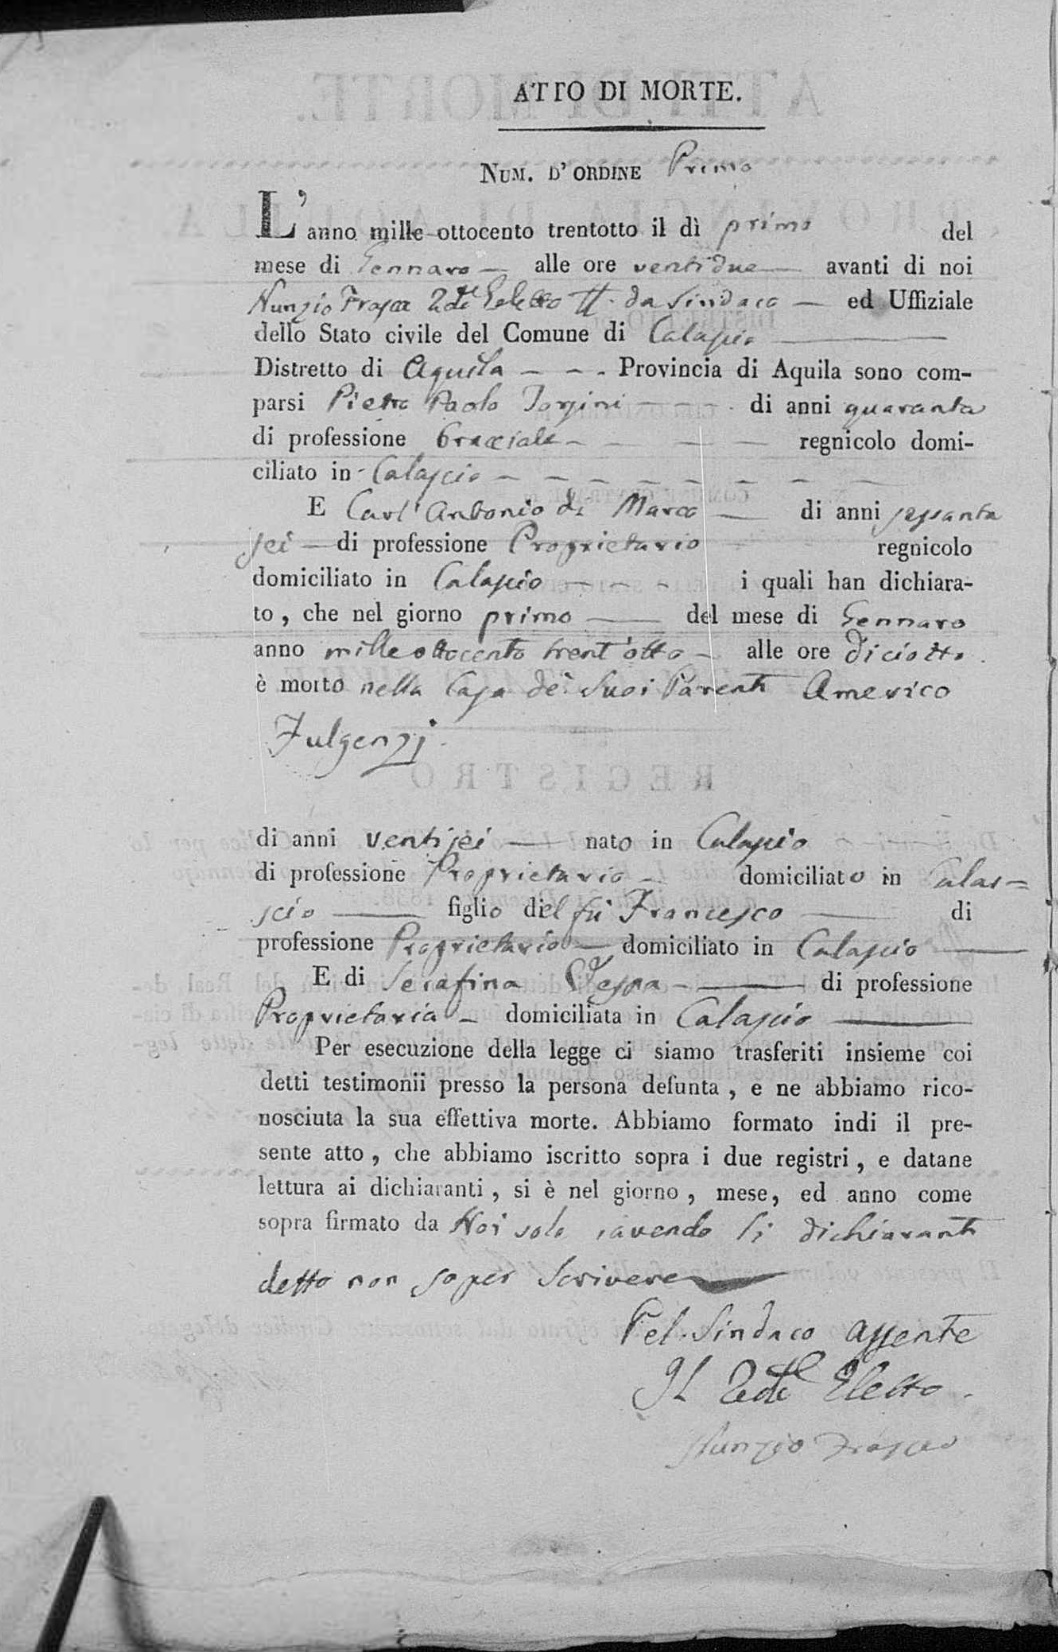 ATTO DI MORTE.
NUM. D'ORDINE Primo
L'anno mille ottocento trentotto il dì primo del
mese di Gennaro alle ore ventidue avanti di noi
Nunzio Frasca Eletto da Sindaco ed Uffiziale
dello Stato civile del Comune di Calascio
Distretto di Aquila Provincia di Aquila sono com-
parsi Pietro Paolo di anni quaranta
di professione bracciale regnicolo domi-
ciliato in Calascio
E Carl'Antonio di Marco di anni sessanta
sei di professione Proprietario regnicolo
domiciliato in Calascio i quali han dichiara-
to, che nel giorno primo del mese di Gennaro
anno mille ottocento trent'otto alle ore diciotto
è morto nella Casa de' Suoi Parenti Americo
Fulgenzj
di anni ventisei nato in Calascio
di professione Proprietario domiciliato in Calas=
scio figlio del fù Francesco di
professione Proprietario domiciliato in Calascio
E di Serafina di professione
Proprietaria domiciliata in Calascio
Per esecuzione della legge ci siamo trasferiti insieme coi
detti testimonii presso la persona defunta, e ne abbiamo rico-
nosciuta la sua effettiva morte. Abbiamo formato indi il pre-
sente atto, che abbiamo iscritto sopra i due registri, e datane
lettura ai dichiaranti, si è nel giorno, mese, ed anno come
sopra firmato da Noi solo, avendo li dichiaranti
detto non saper Scrivere
Pel Sindaco assente
Il Eletto
Nunzio Frasca